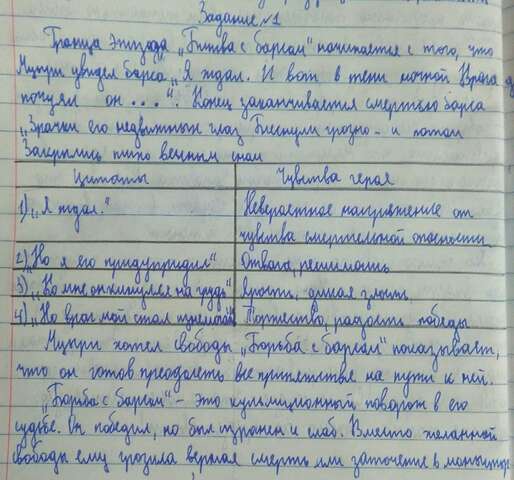 Задание №1
Граница эпизода „Битва с барсом" начинается с того, что
Мцыри увидел барса „Я ждал. И вот в тени ночной Врага
почуял он ...". Конец заканчивается смертью барса
„Зрачки его недвижных глаз Блеснули грозно - и потом
Закрылись тихо вечным сном
Цитаты Чувства героя
1) „Я ждал." Невероятное напряжение от
чувства смертельной опасности.
2) „Но я его предупредил" Отвага, решимость
3) „Но мне он кинулся на грудь" ярость, дикая злость
4) „Но враг мой стал изнемогать" Торжество, радость победы
Мцыри хотел свободы „Борьба с барсом" показывает,
что он готов преодолеть все припятствие на пути к ней.
„Борьба с барсом" - это кульмиционный поворот в его
судьбе. Он победил, но был изранен и слаб. Вместо желанной
свободы ему грозила верная смерть или заточение в